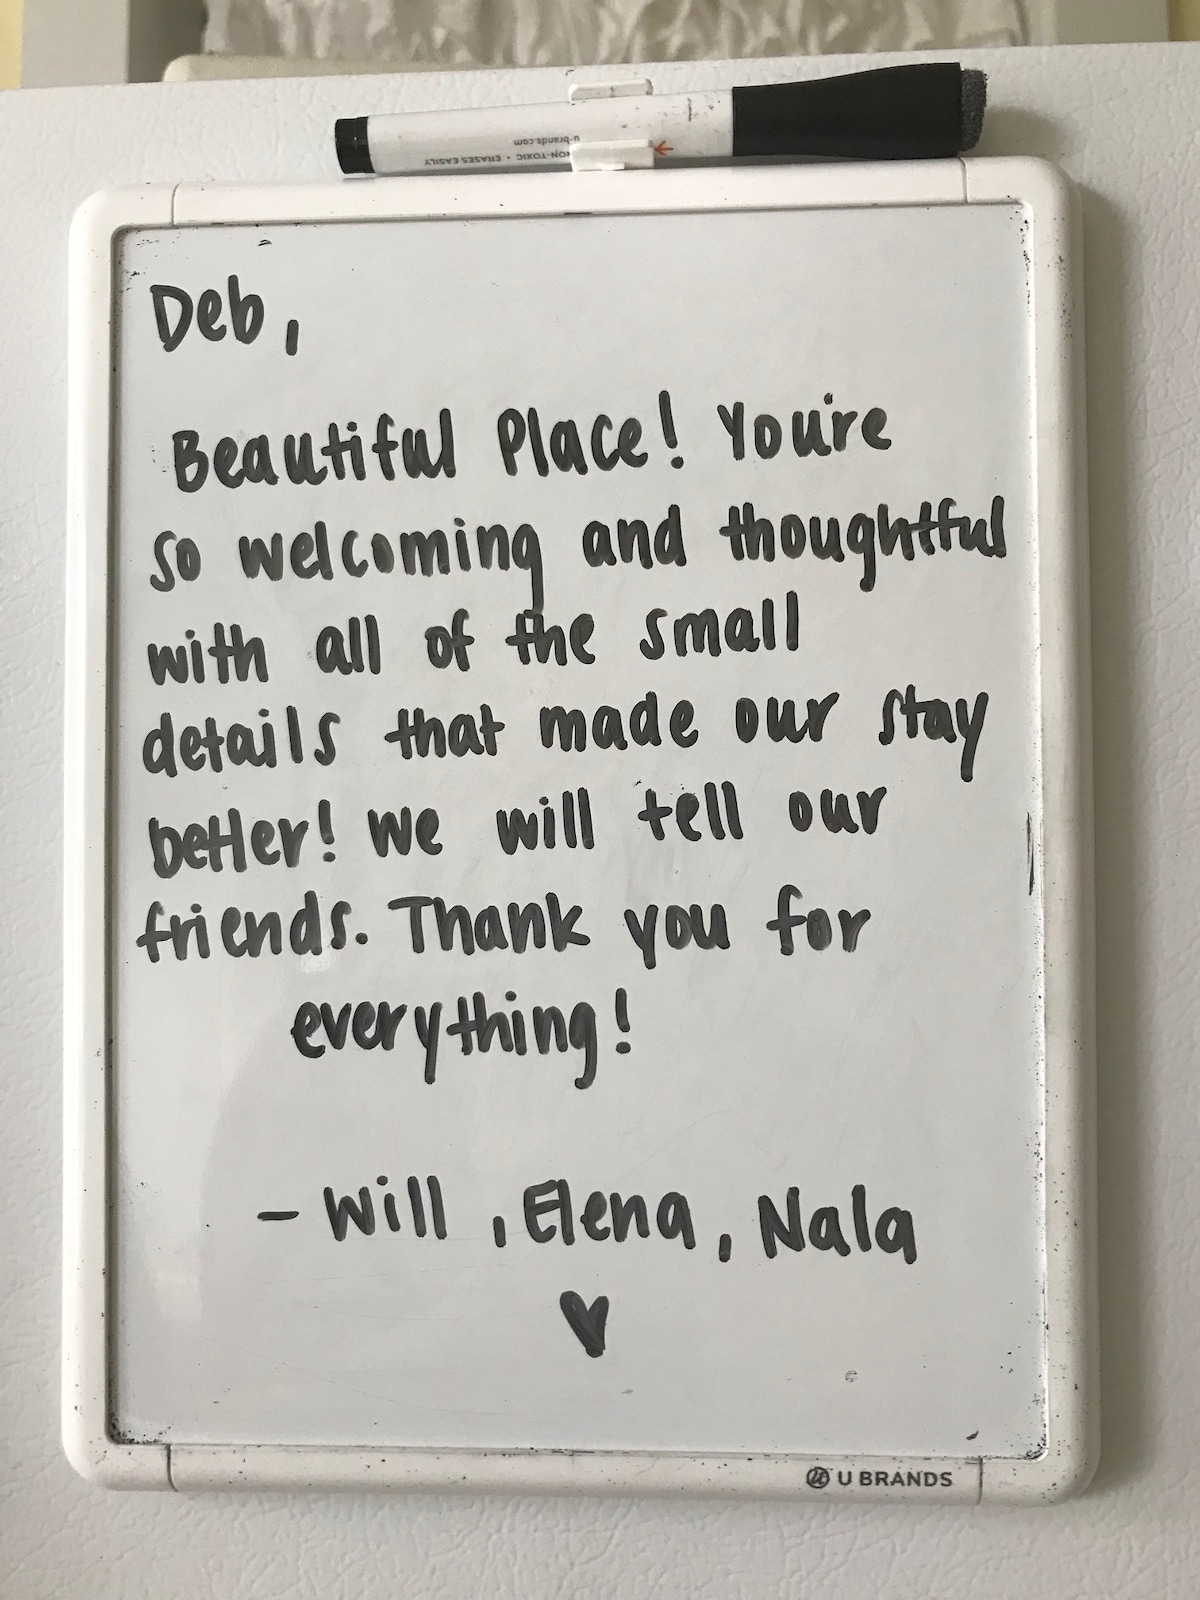 u-brands.com
NON-TOXIC • ERASES EASILY
Deb,
Beautiful Place! You're
so welcoming and thoughtful
with all of the small
details that made our stay
better! We will tell our
friends. Thank you for
everything!
- Will, Elena, Nala
♥
U BRANDS